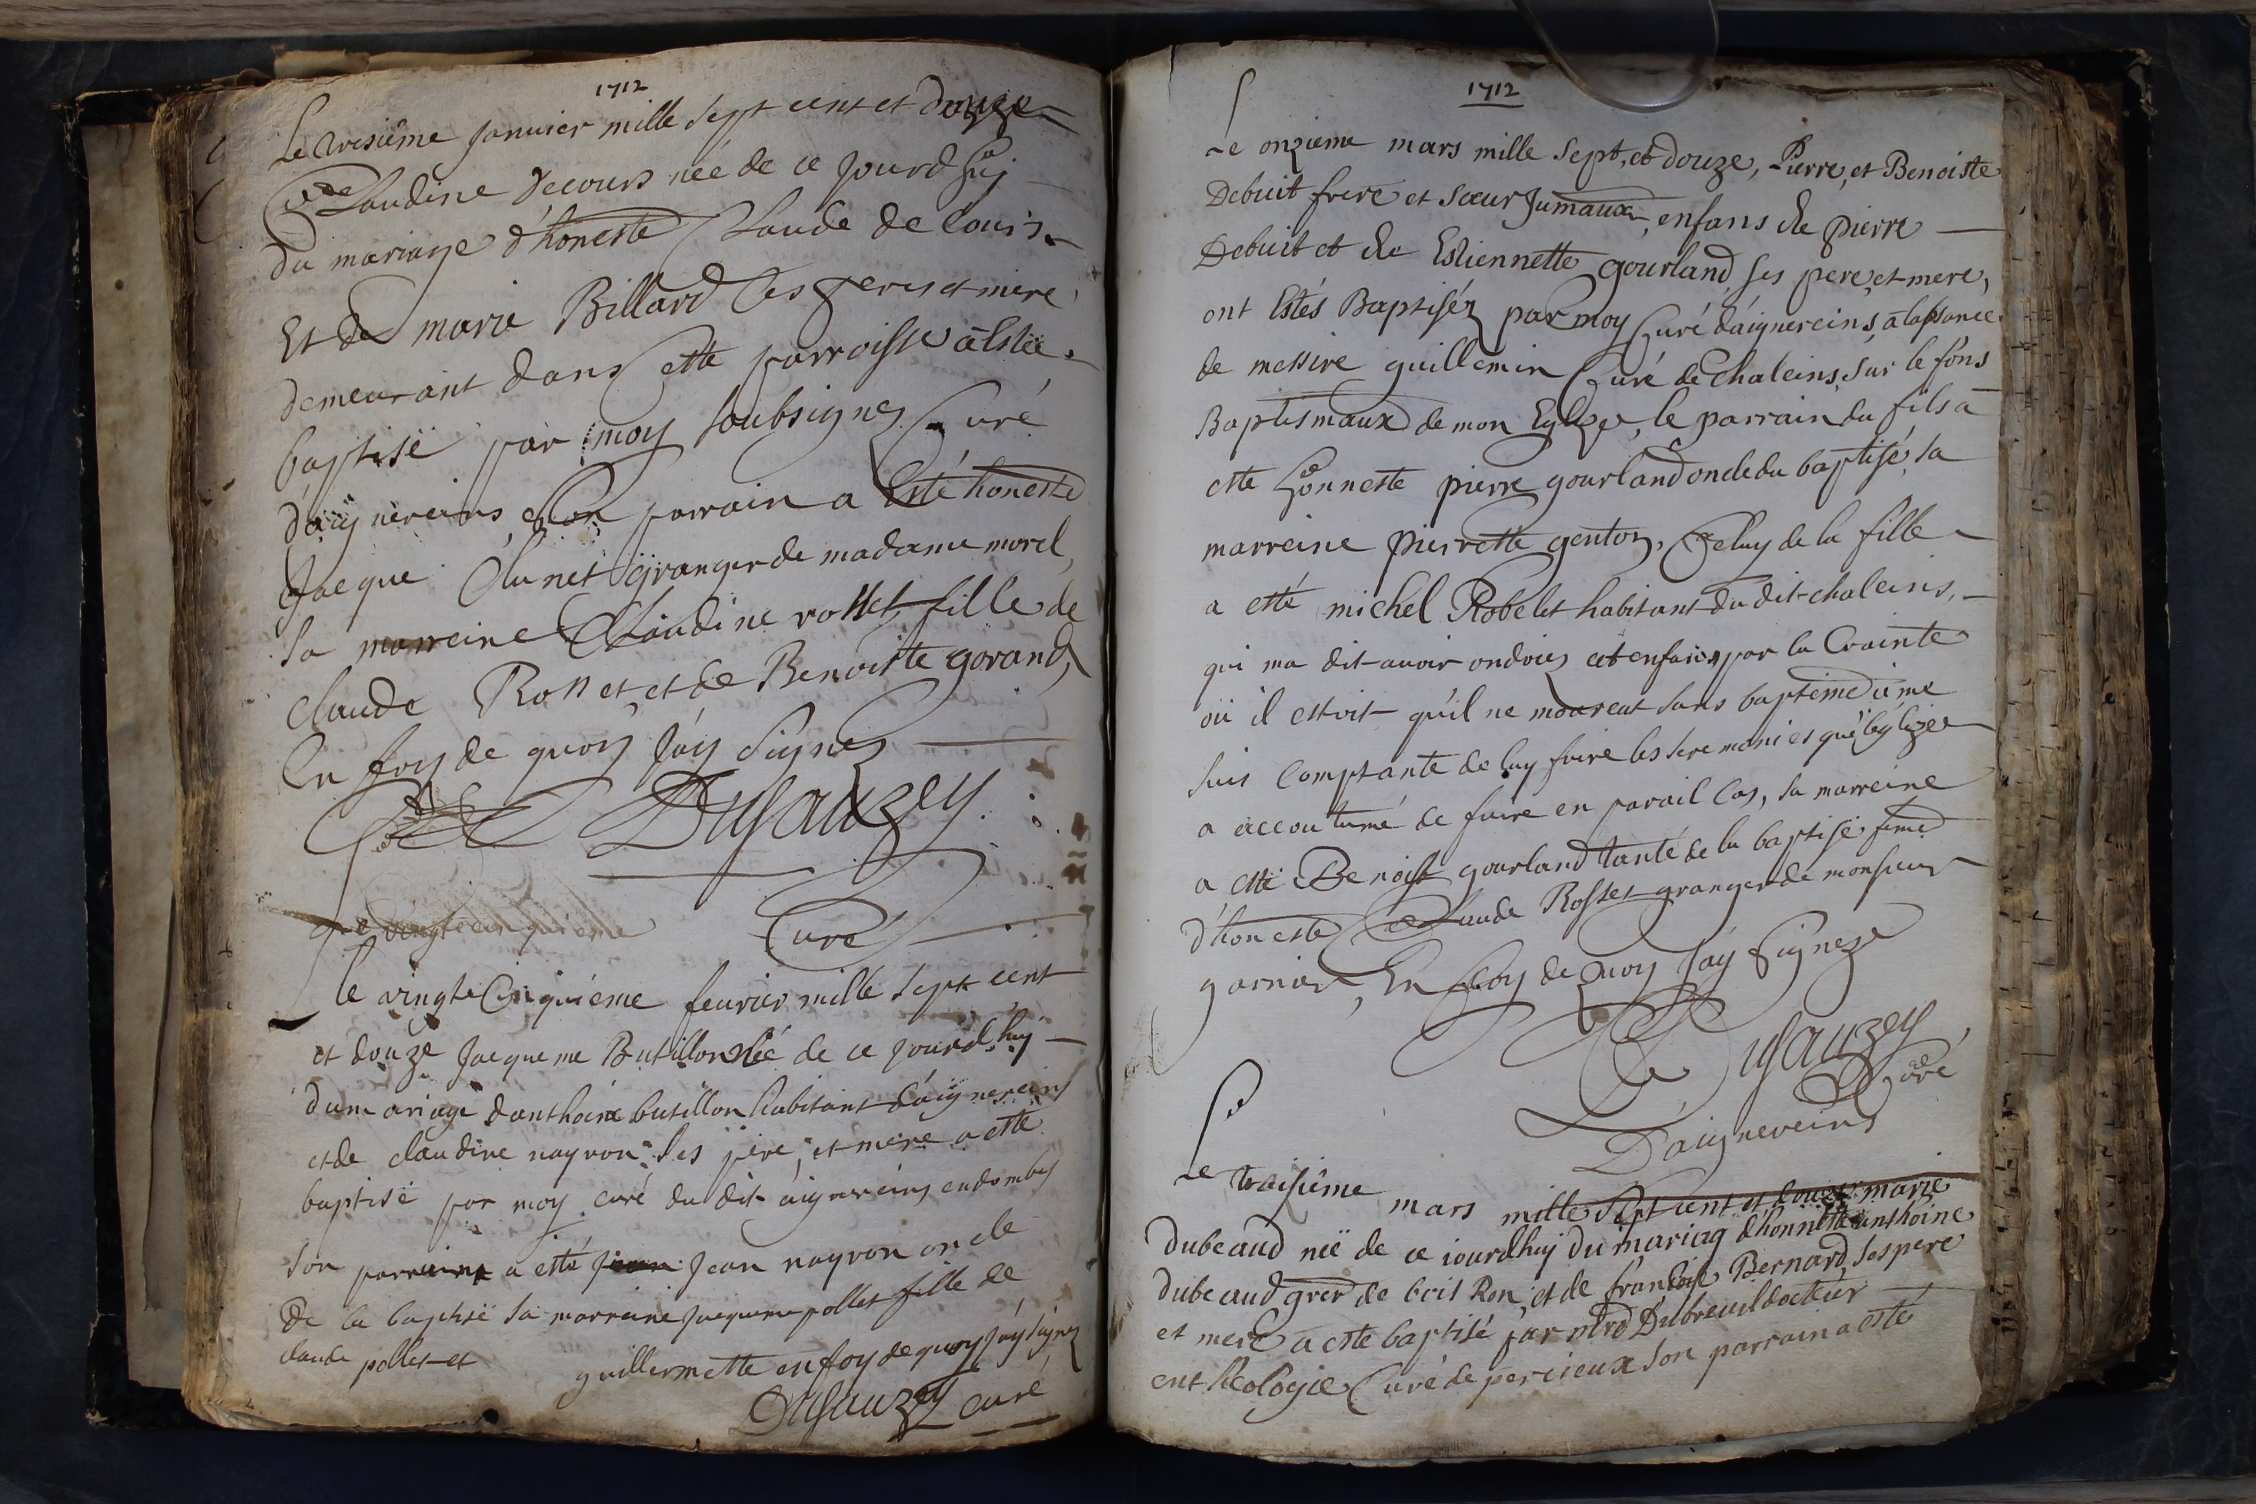 1712
Le troisième Janvier mille Sept cent et Douze
Claudine Decours née de ce Jourd huj
du mariage d'honeste Claude de Cours
Et de marie Billard ses peres et mere
demeurant dans cette parroisse a estée
baptisé par moy soubsignez Curé
d'aignereins son parrain a Esté honeste
Jacque Clunet granger de madame morel,
Sa marreine Claudine rosset fille de
Claude Rosset et de Benoiste gorand,
En foy de quoy J'ay Signez
Dusauzey
Curé
le vingte Cinquiéme feurier mille sept cent
et douze Jacqueme Butillon née de ce jourd huj
du mariage d'anthoine butillon habitant d'aignereins
et de claudine nayron ses père, et mere a esté
baptisé par moy curé du dit aignereins en dombes
Son parrain a esté Jean nayron oncle
De la baptisé sa marreine Jacqueme pollet fille de
claude pollet et guillermette en foy de quoy J'ay signez
Dusauzey curé
1712
Le onzieme mars mille Sept, et douze, Pierre, et Benoiste
Debuit frere et sœur Jumaux, enfans de pierre
Debuit et de Estiennette gourland, ses pere, et mere,
ont Estés Baptiséz par moy Curé d'aignereins, a labsance
de messire guillemin Curé de Chaleins, sur le fons
Baptismaux de mon Eglize, le parrain du fils a
esté honneste pierre gourland oncle du baptisé, sa
marreine pierrette genton, Celuy de la fille
a esté michel Robelet habitant du dit chaleins,
qui ma dit avoir ondoiez cet enfain par la Crainte
où il estoit qu'il ne mourcut sans baptéme ie me
suis Comptante de luy faire les seremonies que l'eglize
a accoutumé de faire en parail Cas, sa marreine
a esté Benoiste gourland tante de la baptisé feme
d'honeste Claude Rosset granger de monsieur
garnier, En foy de Quoy J'ay Signeze
Dusauzey
Curé
D'aignereins
Le traisiême mars mille Sept cent et douze marie
dubeaud neë de ce iourdhuj du mariag d'honneste anthoine
dubeaud grger de bois Ron, et de francoise Bernard, ses pere
et mere a esté baptisé par mre Dubreuil docteur
en theologie Curé de percieux son parrain a esté